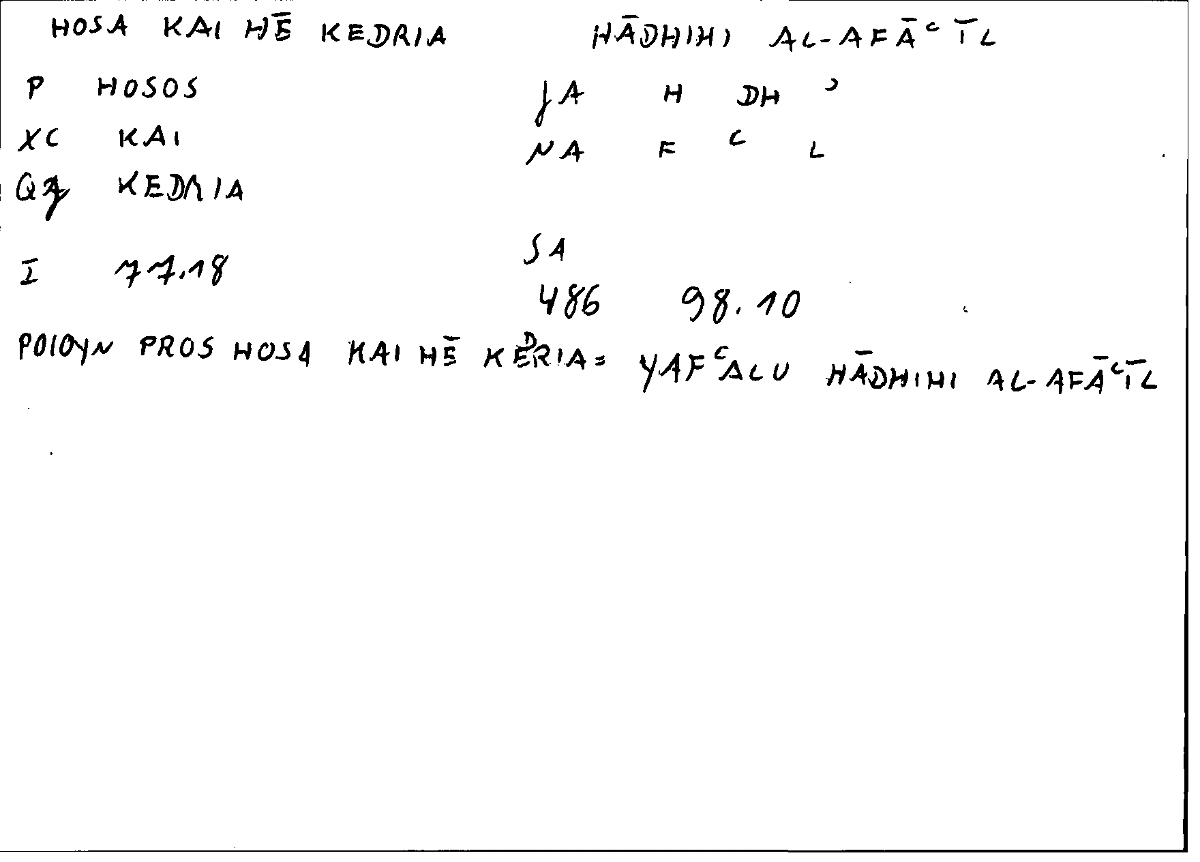 HOSA KAI HĒ KEDRIA HĀDHIHI AL-AFĀʿĪL
P HOSOS JA H DH ʾ
XC KAI NA F ʿ L
QZ KEDRIA
I 77.18 SA
486 98.10
POIOYN PROS HOSA KAI HĒ KEDRIA = YAFʿALU HĀDHIHI AL-AFĀʿĪL